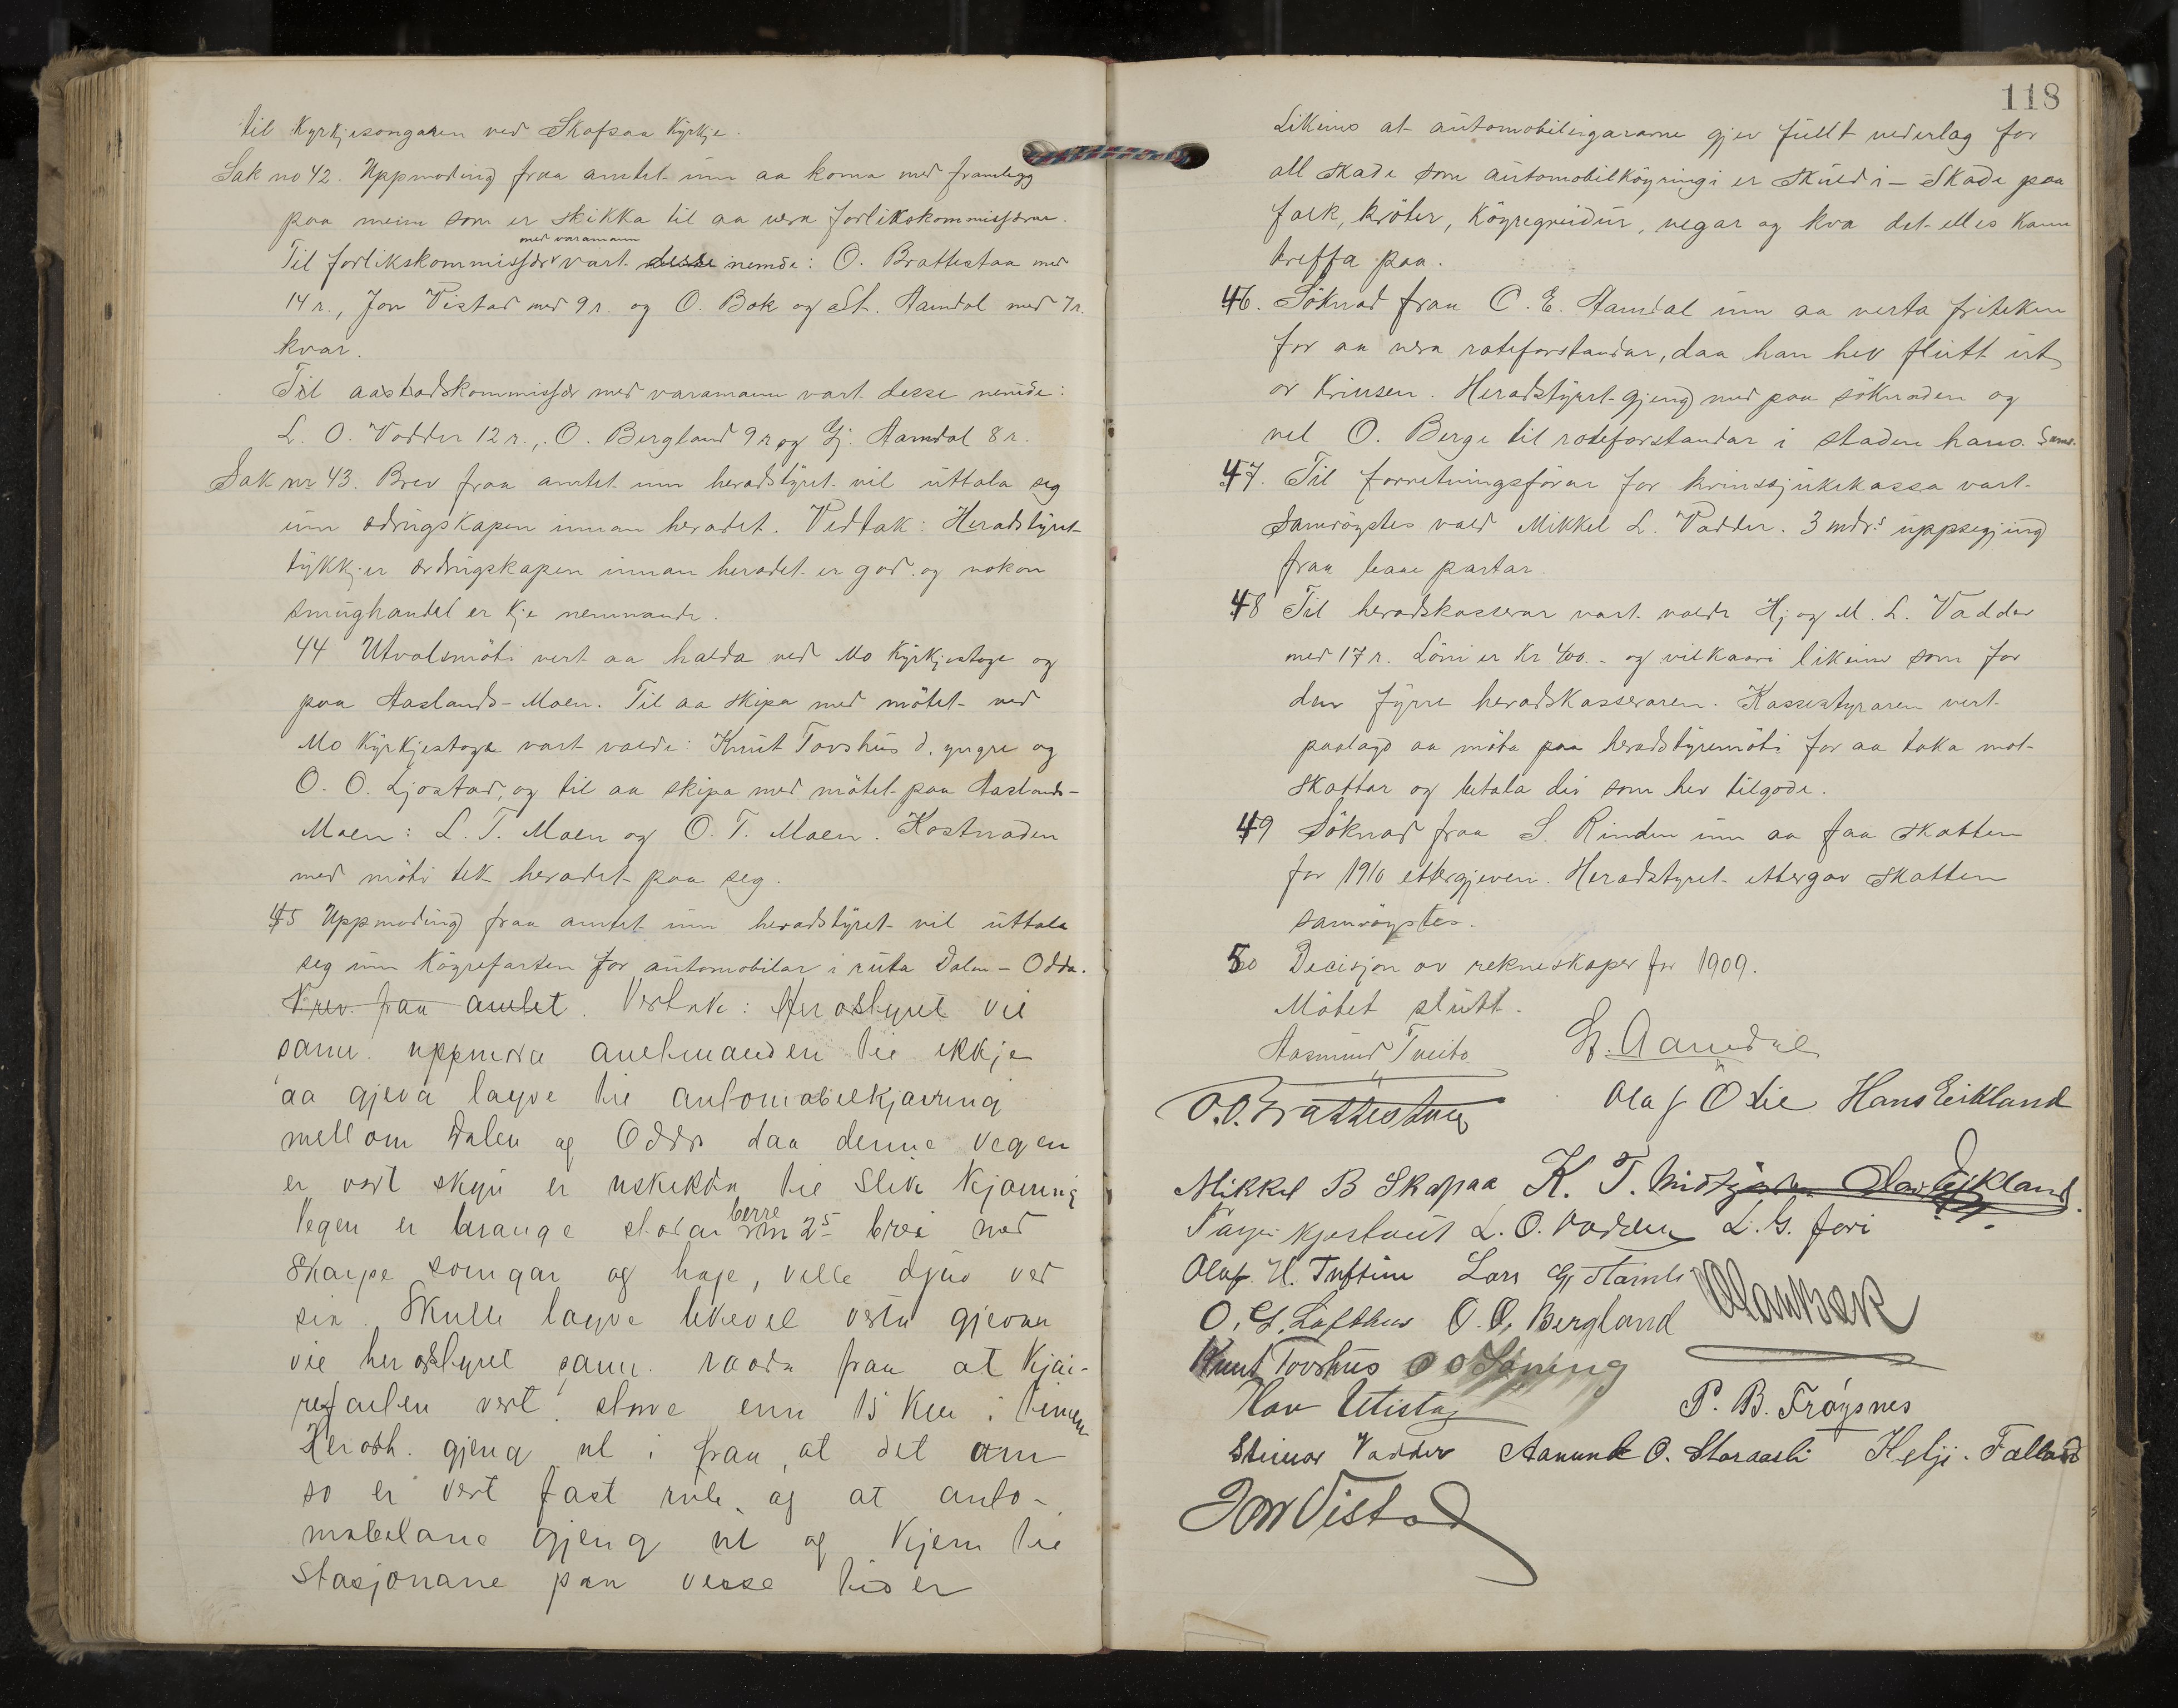 til Kyrkjesongaren ved Skafsaa Kyrkje.
Sak no 42. Uppmoding fraa amtet um aa koma med framlegg
paa menn som er skikka til aa vera forlikskommissærar.
med varamann
Til forlikskommissær vart desse nemde: O. Brattestaa med
14 r., Jon Vistad med 9 r. og O. Bok og St. Aamdal med 7 r.
kvar.
Til aastadskommissær med varamann vart desse nemde:
L. O. Vadder 12 r., O. Bergland 9 r og Gj. Aamdal 8 r.
Sak nr 43. Brev fraa amtet um heradstyret vil uttala seg
um ædrugskapen innan heradet. Vedtak: Heradstyret
tykkjer ædrugskapen innan heradet er god og nokon
smughandel er kje nemnande.
44 Utvalsmöti vert aa halda ved Mo Kyrkjestoge og
paa Aaslands-Moen. Til aa skipa med mötet ved
Mo Kyrkjestoga vart valde: Knut Tovshus d. yngre og
O. O. Ljostad, og til aa skipa med mötet paa Aaslands-
Moen: L. T. Moen og O. T. Moen. Kostnaden
med möti tek heradet paa seg.
45 Uppmoding fraa amtet um heradstyret vil uttala
seg um Köyrefarten for automobilar i ruta Dalen - Odda.
Brev fraa amtet. Vertak: Heradstyret vil
samr. uppmoda amtmanden til ikkje
aa gjeva løyve til automobilkjøyring
mellom Dalen og Odda daa denne vegen
er vort skyn er uskikka til slik kjøyring
Vegen er trange stodar berre um 2 5 brei med
skarpe svingar og høge, ville djuv ved
sia. Skulle løyve likevel verta gjevan
vil heradstyret samr. raada fraa at kjøi-
refarten vert större enn 15 Km i timen
Heradst. gjeng ut i fraa, at det am
so er vert fast rute, og at auto-
mobilane gjeng ut og kjem til
stasjonane paa visse tider
118
Likeins at automobileigarane gjev fullt vederlag for
all skade som automobilköyringi er skuld i - Skade paa
folk, kröter, köyregreidur, vegar og kva det elles kann
treffa paa.
46. Söknad fraa O. E. Aamdal um aa verta friteken
for aa vera roteforstandar, daa han hev flutt ut
or Krinsen. Heradstyret gjeng med paa söknaden og
vel O. Berge til roteforstandar i staden hans. Samr.
47. Til forretningsförar for krinssjukekassa vart
samröystes vald Mikkel L. Vadder. 3 mdr.s uppsegjing
fraa baae partar.
48 Til heradskasserar vart valde Hj og M. L. Vadder
med 17 r. Löni er Kr 400.- og vilkaari likeins som for
den fyrre heradskasseraren. Kassestyraren vert
paalagd aa möta paa heradstyremöti for aa taka mot
skattar og betala dei som hev tilgode.
49 Söknad fraa S. Rinden um aa faa skatten
for 1910 ettergjeven. Heradstyret ettergav skatten
samröystes.
50 Decisjon av rekneskaper for 1909.
Mötet slutt.
Aasmund Tveito Gj. Aamdal
O. O. Brattestaa Olaf O Lie Hans Eikland
Mikkel B Skafsaa K. T. Midtgarden Olav Eikland
Tarje Kjostveit L. O. Vadder L. G. Jori
Olaf. H. Tuftin Lars Gj
O. G. Lofthus O. O. Bergland Olav Bok
Knut Tovshus O O Löning
P. B. Fröysnes
Steinar Vadder Aanund O. Storaasli Helje. Falland
Jon Vistad